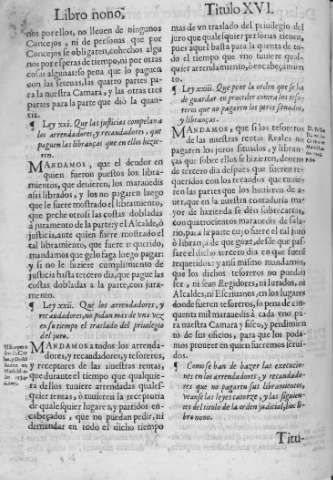 Libro nono,
Titulo XVI.
nos por ellos, no lleuen de ningunos
Concejos, ni de personas que por
Concejos se obligaren, cohechos algu
nos por esperas de tiempo, ni por otras
cosas algunas: so pena que lo paguen
con las setenas, las quatro partes pa-
ra la nuestra Camara, y las otras tres
partes para la parte que dio la quan-
tia.
¶ Ley xxj. Que las justicias compelan a
los arrendadores, y recaudadores, que
paguen las libranças que en ellos hizie-
ren.
MANDAMOS, que el deudor en
quien fueren puestos los libra-
mientos, que deuieren, los marauedis
assi librados, y los no pagaren luego
que le fuere mostrado el libramiento,
que peche otros si las costas dobladas
a juramento de la parte; y el Alcalde, ò
justicia, ante quien fuere mostrado el
tal libramiento, que fuere requerido,
mandamos que gelo faga luego pagar:
y si no le fiziere cumplimiento de
justicia hasta tercero dia, que pague las
costas dobladas a la parte, con jura-
mento.
¶ Ley xxij. Que los arrendadores, y
recaudadores, no pidan mas de vna vez
en su tiempo el traslado del priuilegio
del juro.
MANDAMOS a todos los arrenda-
dores, y recaudadores, y tesoreros,
y receptores de las nuestras rentas,
que durante el tiempo que qualquie-
ra dellos tuuiere arrendadas quales-
quier rentas, ò tuuieren la receptoria
de qualesquier lugares, y partidos en-
cabeçados, que no puedan pedir, ni
demandar en todo el dicho tiempo
mas de vn traslado del priuilegio del
juro que qualesquier personas tienen,
pues aquel basta para la quenta de to-
do el tiempo que vno tuuiere qual-
quier arrendamiento, ò encabeçamien
to.
¶ Ley xxiij. Que pone la orden que se ha
de guardar en proceder contra los teso-
reros que no pagaren los juros situados,
y libranças.
MANDAMOS, que si los tesoreros
de las nuestras rentas Reales no
pagaren los juros situados, y libran-
ças que sobre ellos se hizieren, dentro
de tercero dia despues que fueren re-
queridos con los recaudos que cumple
en las partes que los huuieren de a-
uer, que en la nuestra contaduria ma-
yor de hazienda se dè sobrecartas,
con quatrocientos marauedis de sala-
rio, para la parte cuyo fuere el tal juro
ò librança, de que goze, desde que pas-
sare el dicho tercero dia en que fuere
requerido: y assi mismo mandamos
que los dichos tesoreros no puedan
ser, ni sean Regidores, ni Iurados, ni
Alcaldes, ni Escriuanos, en los lugares
donde fueren tesoreros, so pena de cin-
cuenta mil marauedis à cada vno pa-
ra nuestra Camara y fisco, y perdimien
to de sus oficios, para que los poda-
mos proueer en quien fueremos serui-
dos.
¶ Como se han de hazer las execuciones
en los arrendadores, y recaudado-
res que no pagaren sus libramientos,
veanse las leyes catorze, y las siguien-
tes del titulo de la orden judicial, deste li-
bro nono.
Titu-